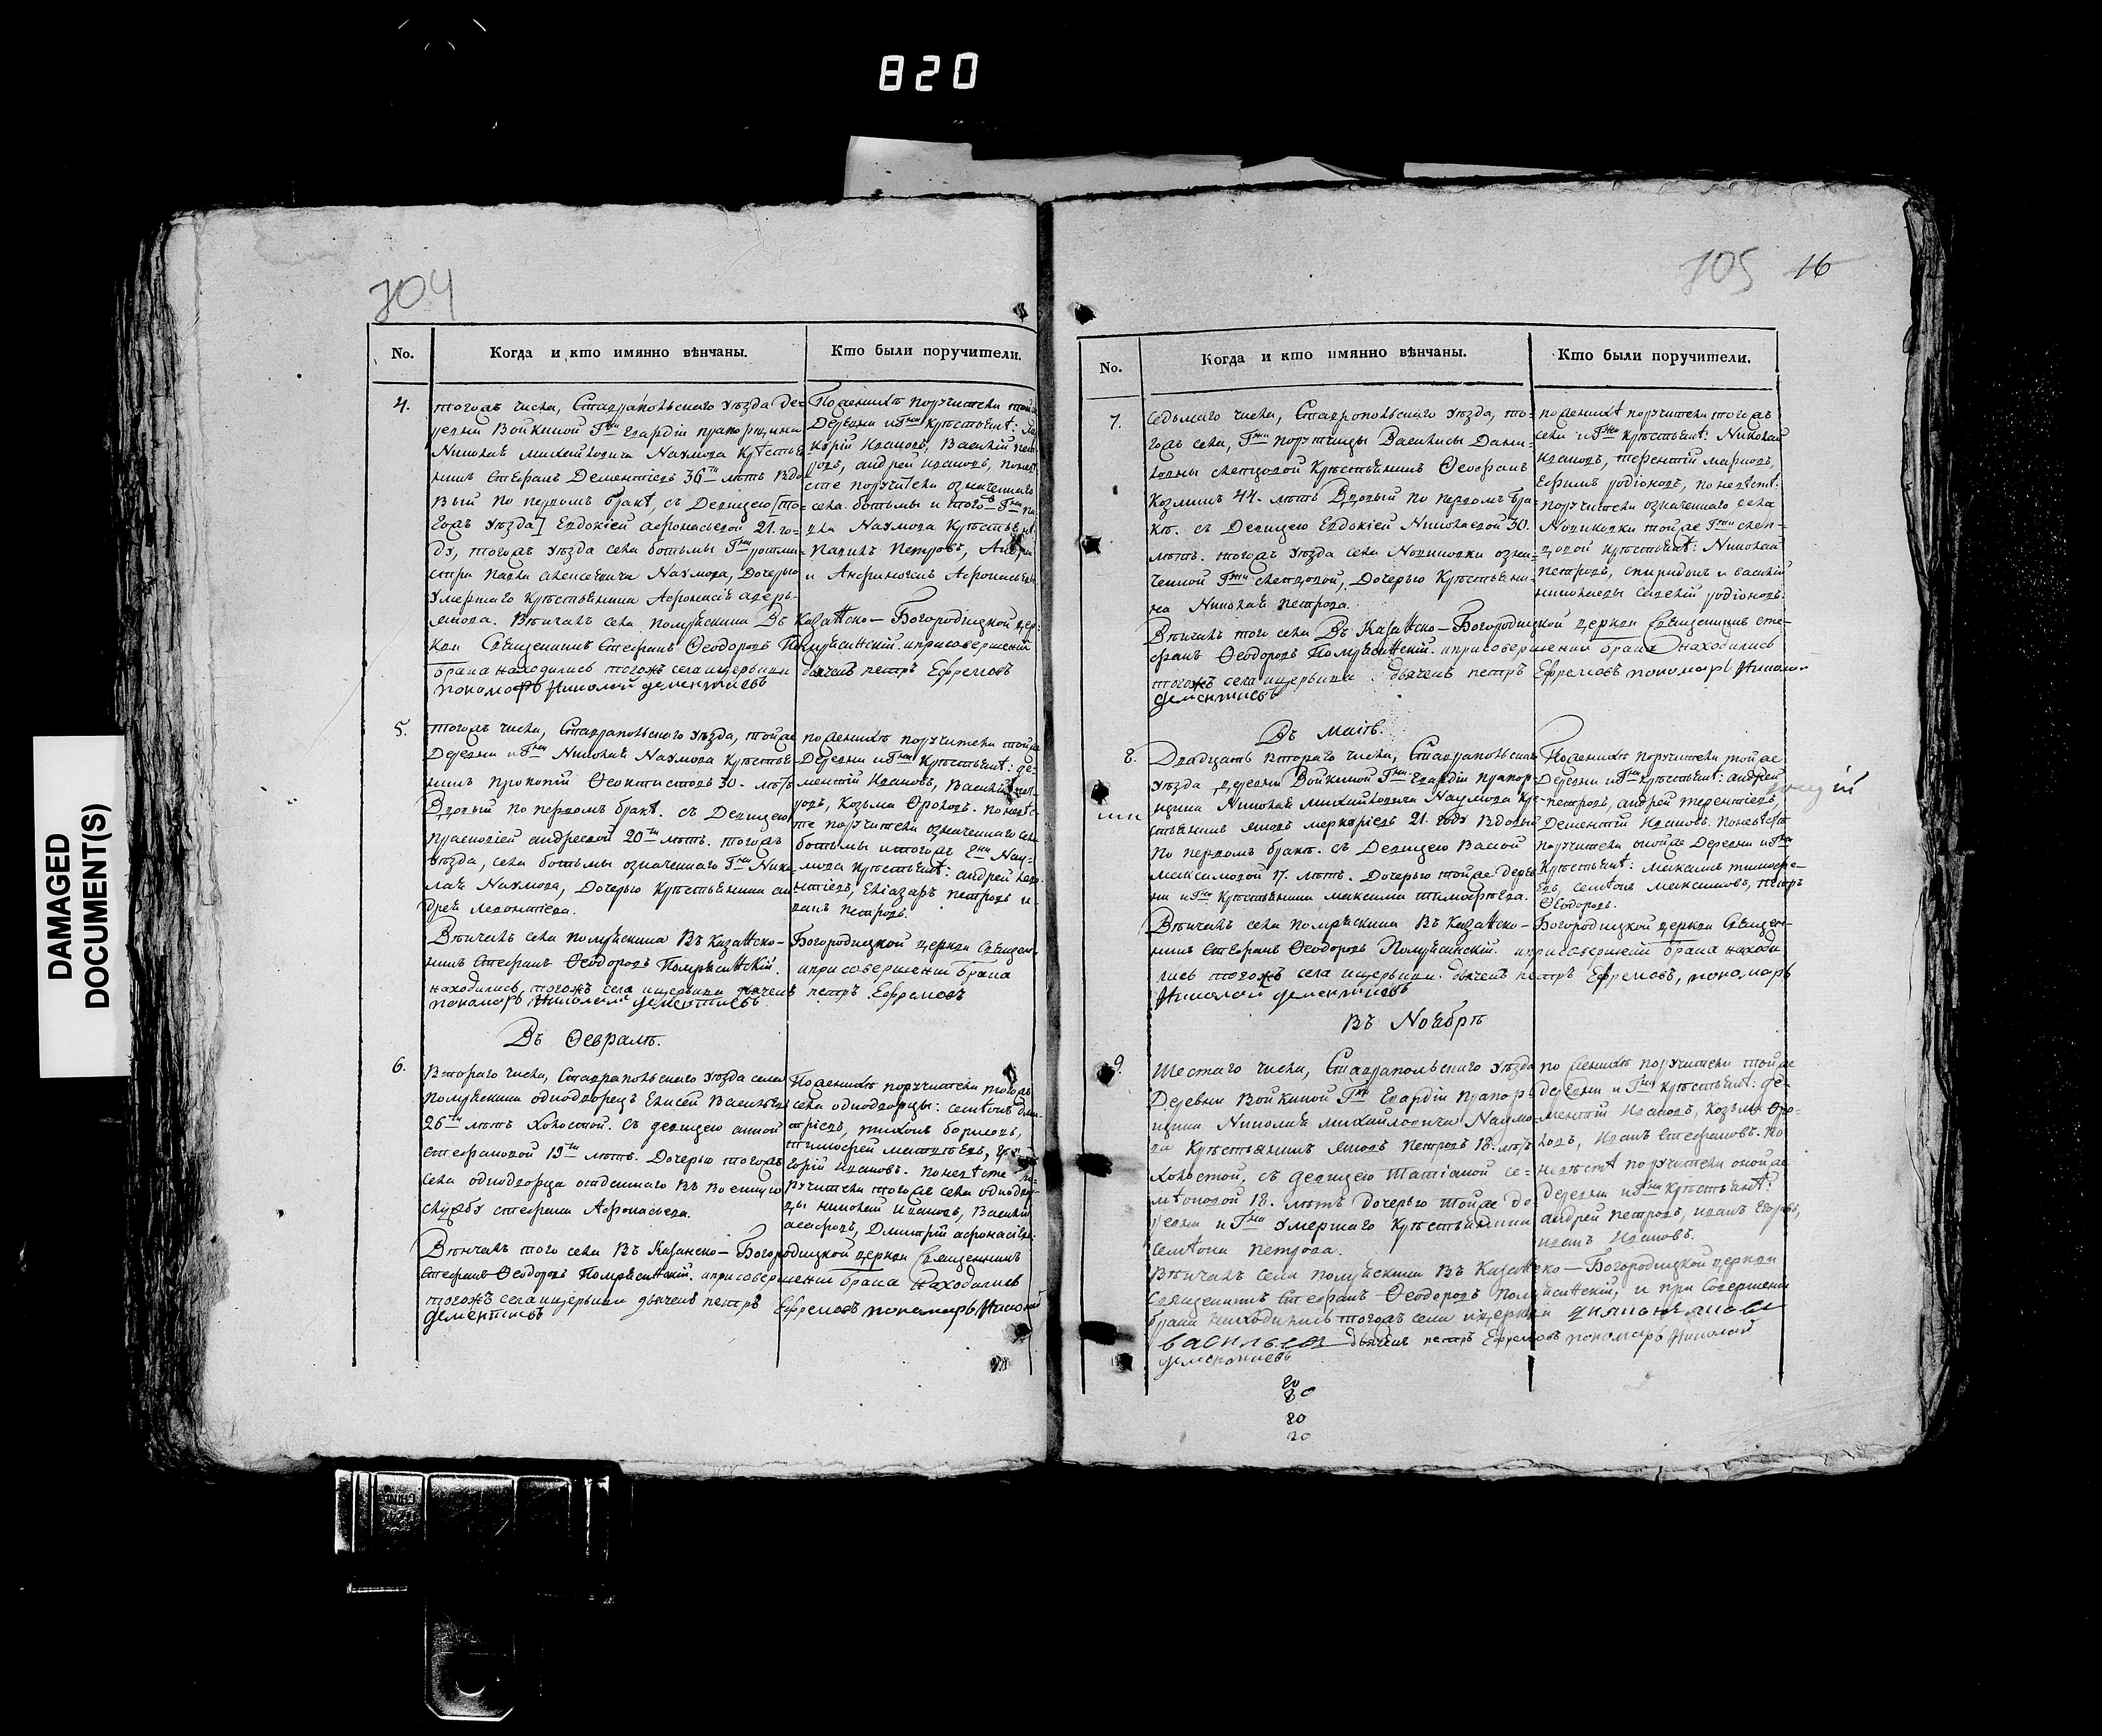 820
DAMAGED
DOCUMENT(S)
704
No.
Когда и кто имянно вѣнчаны.
Кто были поручители.
4.
тогожъ числа, Ставрапольскаго уѣзда де-
ревни Войкиной Гжи Гвардіи прапорщика
Николая Михайловича Наумова Крестья-
нинъ Стефанъ Дементіевъ 36ти лѣтъ Вдо
вый по первомъ бракѣ, съ Девицею [то-
гожъ уѣзда] Евдокіей Афонасьевой 21. го-
ду, тогожъ уѣзда села ботьмы
Павла Алексеевича Наумова, Дочерью
Умершаго Крестьянина Афонасія
Вѣнчалъ села Полуяскина Въ Казанско-Богородицкой цер-
кви Священникъ Стефанъ Ѳеодоровъ Полуяситскій. и при совершеніи
брака находились тогожъ села и церькви дьячекъ петръ Ефремовъ
пономарь Николай Дементиевъ
По женихѣ поручители той же
Деревни и Гжи Крестьянѣ:
Ивановъ, Василій
Андрей Ивановъ, по невѣ
сте поручители означеннаго
села ботьмы и того Гна
Наумова Крестьянѣ:
Петровъ,
и Афонасьевы
5.
тогожъ числа, Ставрапольскаго уѣзда, той же
Деревни и Гжи Николая Наумова Крестья
нинъ Прокопій Ѳеоктистовъ 30. лѣтъ
Вдовый по первомъ бракѣ. съ Девицею
Прасковіей Андреевой 20ти лѣтъ. тогожъ
уѣзда, села ботьмы означеннаго Гна Нико
лая Наумова, Дочерью Крестьянина Ан
дрея Леонтіева.
Вѣнчалъ села Полуяскина Въ Казанско-Богородицкой церкви Священ-
никъ Стефанъ Ѳеодоровъ Полуяситскій. и при совершеніи брака
находились, тогожъ села и церькви дьячекъ петръ Ефремовъ
пономарь Николай Дементиевъ
по женихѣ поручители той же
Деревни и Гжи Крестьянѣ: Де-
ментій Ивановъ, Василій
Козьма Фроловъ. по невѣс
те поручители означеннаго села
ботьмы и тогожъ Гна Нау-
мова Крестьянѣ: Андрей Лео-
нтіевъ, Еліазаръ Петровъ и
Иванъ Петровъ.
Въ Ѳевралѣ.
6.
Втораго числа, Ставрапольскаго уѣзда села
Полуяскина однодворецъ Елисей Васильевъ
26ти лѣтъ Холостой. съ девицею Анной
Стефановой 19ти лѣтъ. Дочерью тогожъ
села однодворца отданнаго въ военную
службу Стефана Афонасьева.
Вѣнчалъ того села Въ Казанско-Богородицкой церкви Священникъ
Стефанъ Ѳеодоровъ Полуяситскій. и при совершеніи брака находились
тогожъ села и церькви дьячекъ петръ Ефремовъ пономарь Николай
Дементиевъ
По женихѣ поручители тогожъ
села однодворцы: Семіонъ Дми-
тріевъ, Тихонъ Борисовъ,
Тимофей Григ
орій Ивановъ. По невѣсте по-
ручители тогожъ села однодвор-
цы Николай Ивановъ, Василій
Дмитрій Афонасіевъ.
705 16
No.
Когда и кто имянно вѣнчаны.
Кто были поручители.
7.
Седьмаго числа, Ставропольскаго уѣзда, то-
гожъ села, Гжи Порутчицы Василисы Дани-
ловны Скепцовой Крестьянинъ Ѳеофанъ
Козминъ 44. лѣтъ Вдовый по первомъ бра-
кѣ. съ Девицею Евдокіей Николаевой 30.
лѣтъ. тогожъ уѣзда села Новиковки озна-
ченной Гжи Скепцовой, Дочерью Крестьяни-
на Николая Петрова.
Вѣнчалъ того села Въ Казанско-Богородицкой церкви Священникъ Сте-
фанъ Ѳеодоровъ Полуяситскій. и при совершеніи брака находились
тогожъ села и церькви. дьячекъ петръ Ефремовъ пономарь Николай
Дементиевъ
по женихѣ поручители тогожъ
села и Гжи Крестьянѣ: Николай
Ивановъ, Терентій Марковъ,
Ефимъ Родіоновъ, по невѣстѣ:
поручители означеннаго села
Новиковки той же Гжи Скеп-
цовой Крестьянѣ: Николай
Петровъ, Спиридонъ и Василій
Николаевы Савелій Родіоновъ.
Въ Маіѣ.
8.
Двадцать втораго числа, Ставрапольскаго
уѣзда деревни Войкиной Гжи Гвардіи прапор-
щика Николая Михайловича Наумова Кре-
стьянинъ Яковъ Меркуріевъ 21. году Вдовый
по первомъ бракѣ. съ Девицею Вассой
Максимовой 17. лѣтъ. Дочерью той же дерев
ни и Гжи Крестьянина Максима Тимофѣева.
Вѣнчалъ села Полуяскина Въ Казанско-Богородицкой церкви Священ-
никъ Стефанъ Ѳеодоровъ Полуяситскій. и при совершеніи брака находи
лись тогожъ села и церькви. дьячекъ петръ Ефремовъ, пономарь
Николай Дементиевъ
По женихѣ поручители той же
Деревни и Гжи Крестьянѣ: Андрей
Петровъ, Андрей Терентіевъ,
Дементій Ивановъ. По невѣстѣ
поручители оной же Деревни и Гжи
Крестьянѣ: Максимъ Тимофе-
евъ, Семіонъ Максимовъ, Петръ
Ѳеодоровъ.
Въ Ноябрѣ
9.
Шестаго числа, Ставрапольскаго уѣзда
Деревни Войкиной Гжи Гвардіи Прапор-
щика Николая Михайловича Наумо-
ва Крестьянинъ Яковъ Петровъ 18. лѣтъ
Холостой, съ девицею Татіаной Се-
міоновой 18. лѣтъ дочерью той же де
ревни и Гжи Умершаго Крестьянина
Семіона Петрова.
Вѣнчалъ села Полуяскина Въ Казанско-Богородицкой церкви
Священникъ Стефанъ Ѳеодоровъ Полуяситскій, и при совершеніи
брака находились тогожъ села и церкви
дьячекъ петръ Ефремовъ пономарь Николай
Дементиевъ
по женихѣ поручители той же
деревни и Гжи Крестьянѣ: Де-
ментій Ивановъ, Козьма Фро-
ловъ, Иванъ Стефановъ. По
невѣстѣ поручители оной же
деревни и Гжи Крестьянѣ:
Андрей Петровъ, Иванъ Егоровъ,
Иванъ Ивановъ.
20
20
20
20